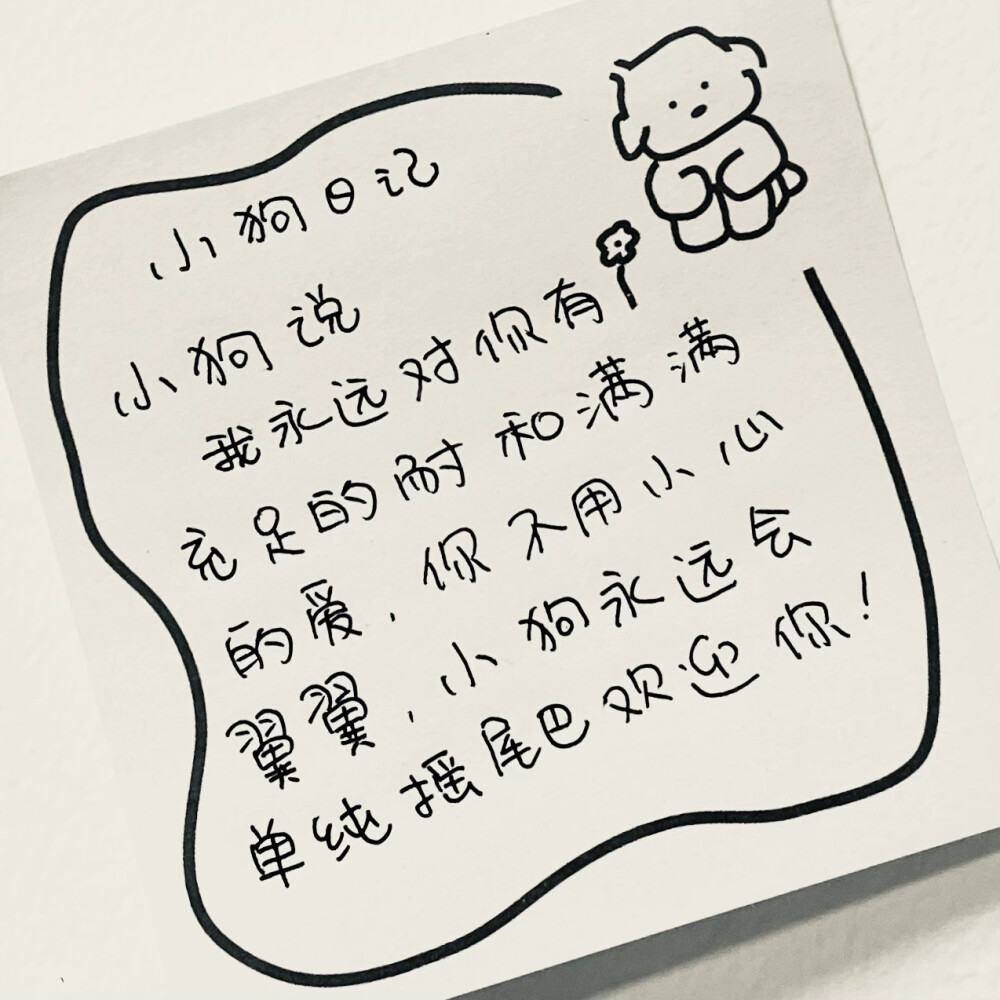 小狗日记
小狗说
我永远对你有
充足的耐和满满
的爱，你不用小心
翼翼，小狗永远会
单纯摇尾巴欢迎你！